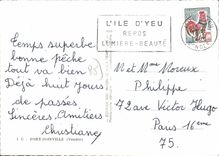 L'ILE D'YEU
REPOS
LUMIÈRE-BEAUTÉ
Temps superbe
bonne pêche
tout va bien
Déjà huit jours
de passés.
Sincères Amitiés
Christiane
I. C. - PORT-JOINVILLE (VENDÉE)
M et Mme Moreux
Philippe
72 Ave Victor Hugo
Paris 16eme
75.